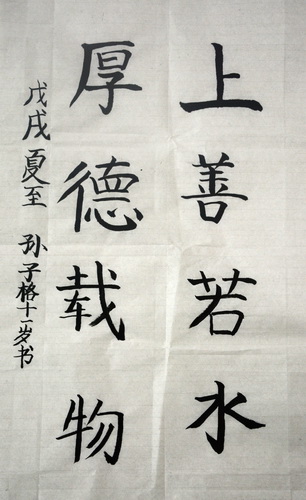 上善若水
厚德载物
戊戌夏至 孙子格十一岁书